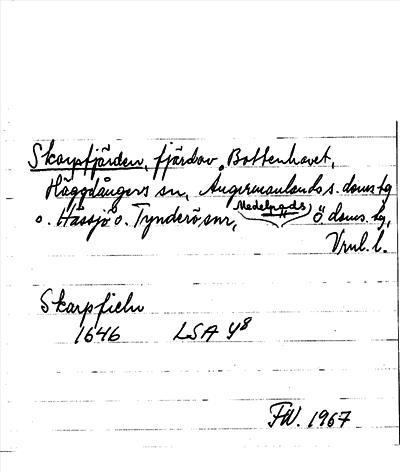 Skarpfjärden, fjärd av Bottenhavet,
Häggdångers sn, Ångermanlands s. doms. hg
o. Hässjö o. Tynderö snr, Medelpads ö. doms. hg,
Vnl. l.
Skarpfieln
1646 LSA Y8
FW. 1967